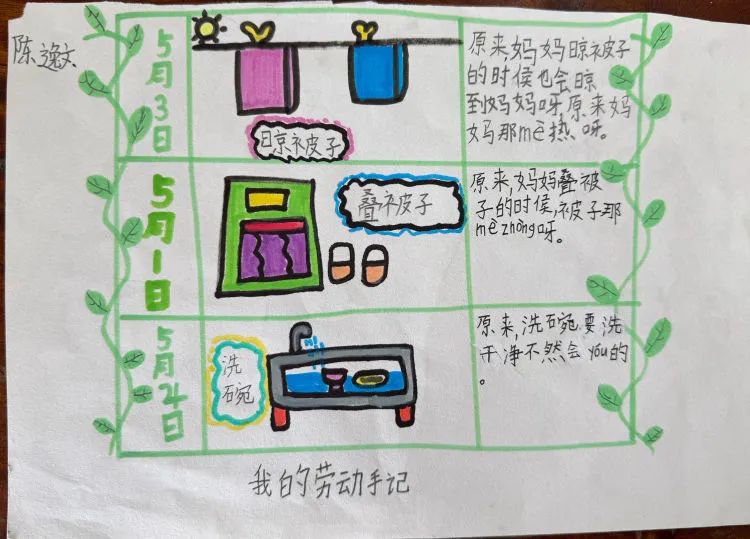 陈逸文
5月3日
晾被子
原来妈妈晾被子
的时候也会晾
到妈妈呀,原来妈
妈那mē热呀。
5月1日
叠被子
原来,妈妈叠被
子的时候,被子那
mē zhòng呀。
5月4日
洗
碗
原来,洗碗要洗
干净不然会you的
。
我的劳动手记